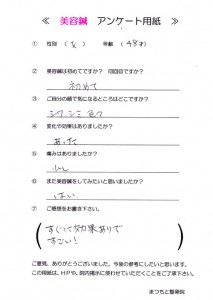 ≪ 美容鍼 アンケート用紙 ≫
① 性別 （ 女 ） 年齢 （ 48才 ）
② 美容鍼は初めてですか？ 何回目ですか？
初めて
③ ご自分の顔で気になるところはどこですか？
シワ シミ 色々
④ 変化や効果はありましたか？
あった
⑤ 痛みはありましたか？
少し
⑥ また美容鍼をしてみたいと思いましたか？
はい
⑦ ご感想をお書き下さい。
すぐに効果ありで
すごい！
ご意見、ありがとうございました。今後の参考にしたいと思います。
この用紙は、HPや、院内掲示に使わせていただくことをご了承下さい。
まつもと整骨院